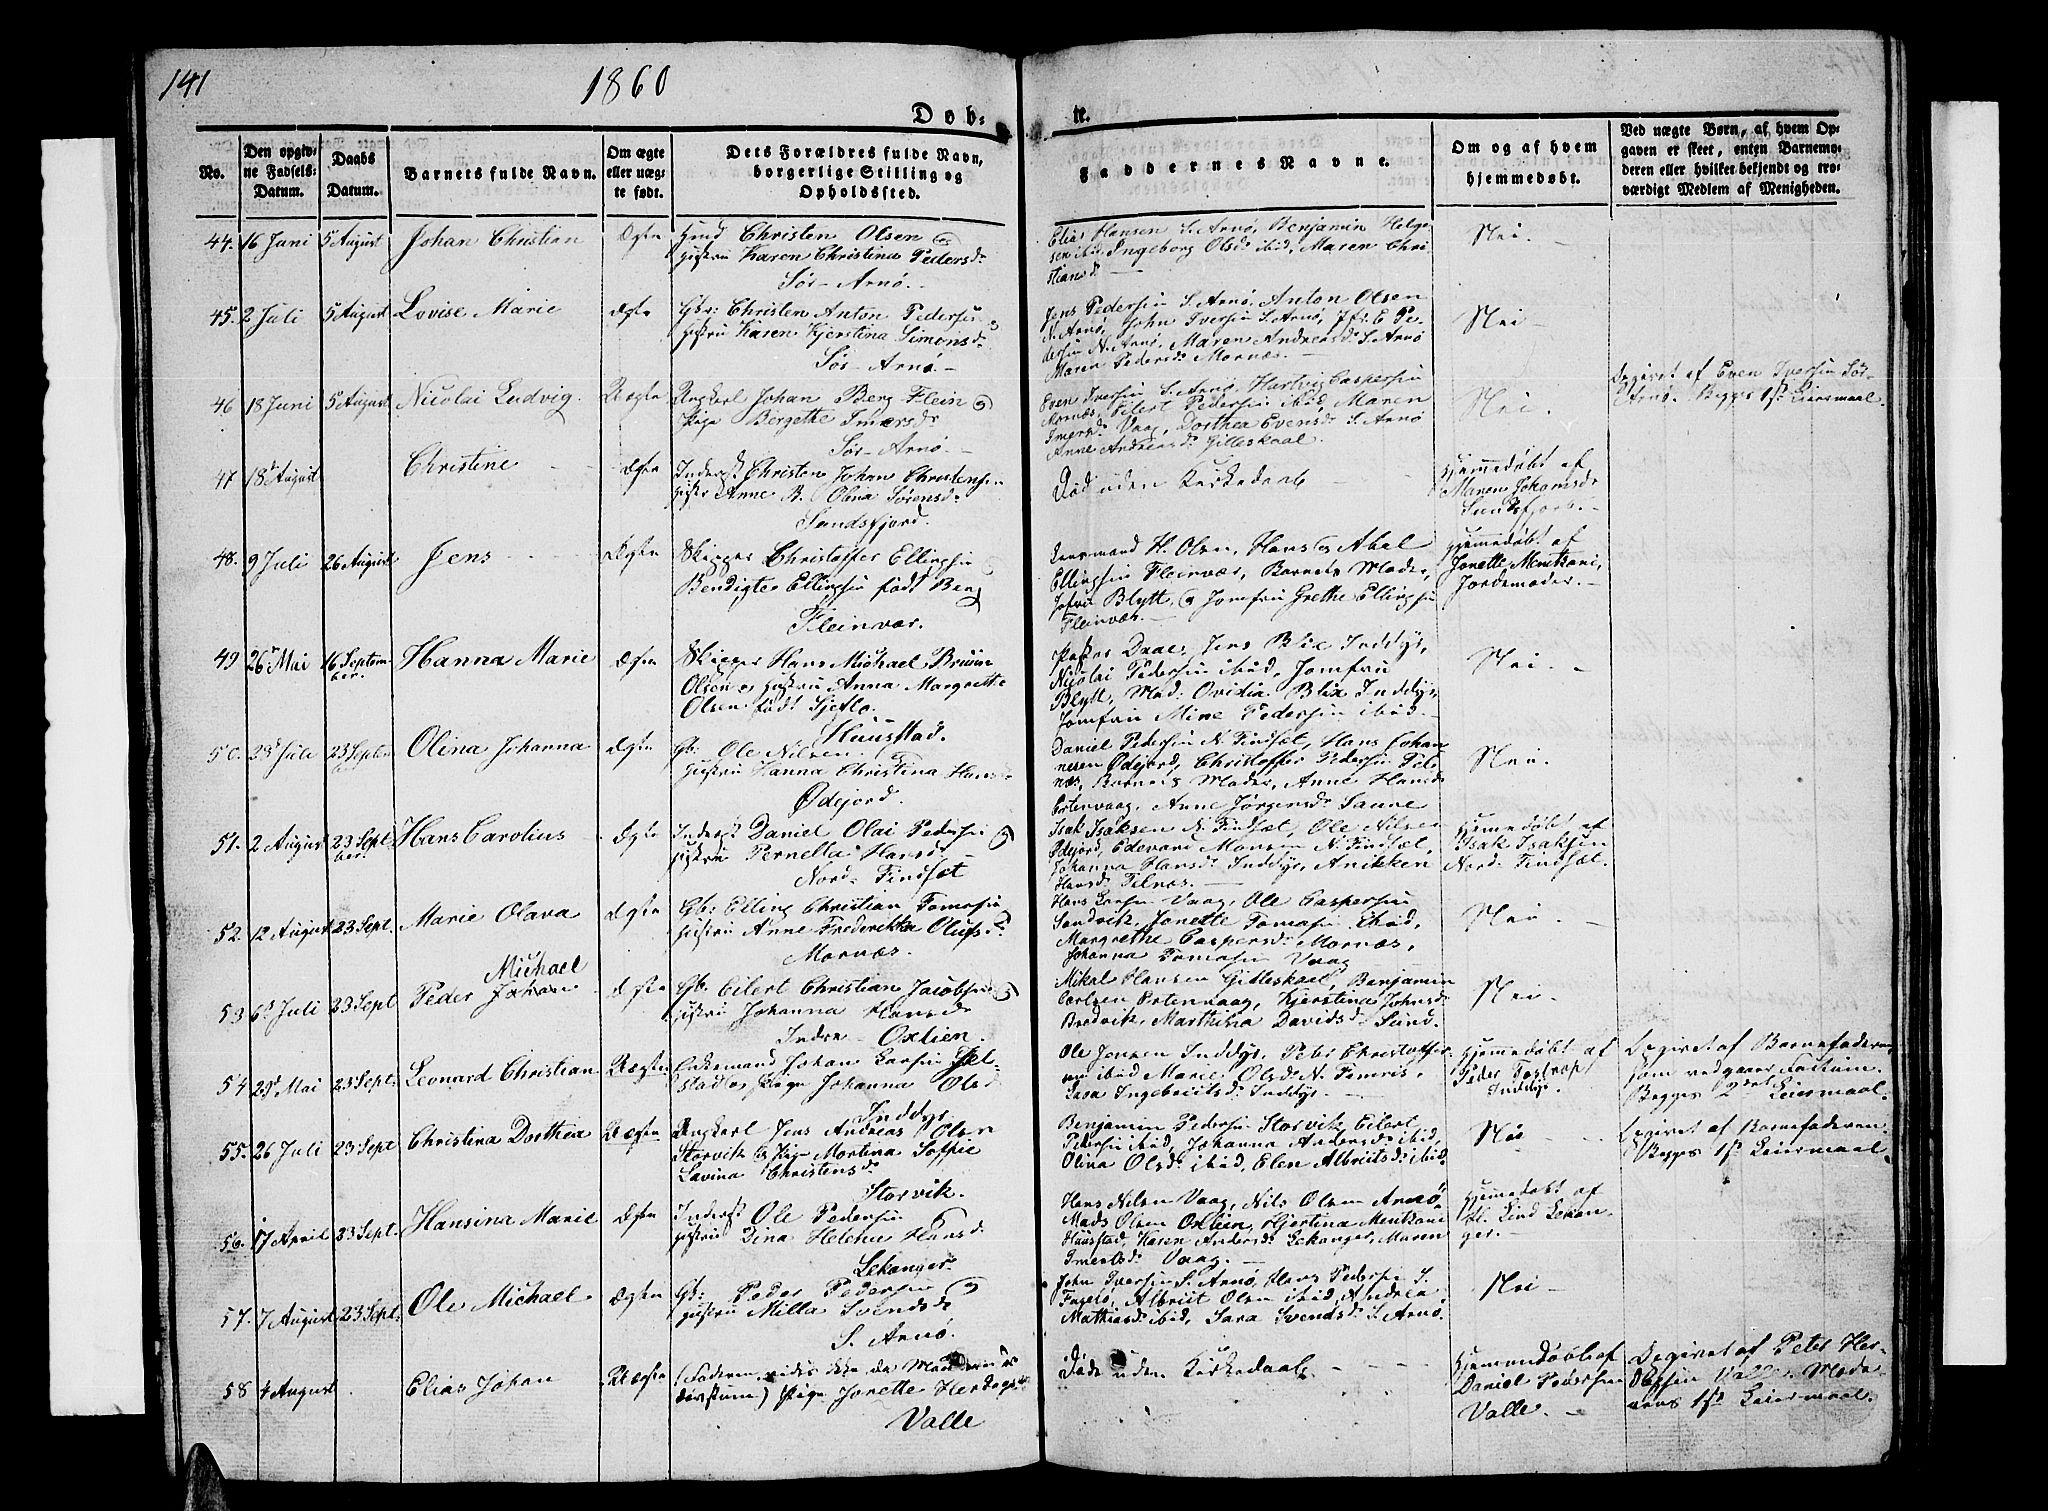 141
1860
Døb-
te.
No.
Den opgiv-
ne Fødsels-
Datum.
Daabs
Datum.
Barnets fulde Navn.
Om ægte
eller uæg-
te født.
Dets Forældres fulde Navn,
borgerlige Stilling og
Opholdssted.
Faddernes Navne.
Om og af hvem
hjemmedøbt.
Ved uægte Børn, af hvem Op-
gaven er skeet, enten Barnemo-
deren eller hvilket bekjendt og tro-
værdigt Medlem af Menigheden.
44. 16 Juni 5 August Johan Christian Ægte Christen Olsen og
Hustru Karen Christina Peders d.
Sør-Arnø.
Elias Hansen S. Arnø, Benjamin Helge-
sen ibid, Ingeborg Olsd. ibid, Maren Chri-
stiansd.
Nei.
45. 2 Juli 5 August Lovise Marie Ægte Gbr: Christen Anton Pedersen
Hustru Karen Kjerstina Simonsd.
Sør-Arnø
Jens Pedersen S. Arnø, Anton Olsen
N. Arnø, John Iversen S. Arnø, E Pe-
dersen N. Arnø, Maren Andreasd. S. Arnø
Maren Pedersd. Mornæs.
Nei
46 18 Juni 5 August Nicolai Ludvig. Uægte Ungkarl Johan Berg Flein og
Pige Bergethe Imersd.
Sør-Arnø.
Even Iversen S. Arnø, Hartvig Caspersen
Mornæs, Eilert Pedersen ibid, Maren
Imersd. Vaag, Dorthea Evensd. S. Arnø
Anne Andreasd. Gilleskaal.
Nei.
Opgivet af Even Iversen Sør-
Arnø. Begges 1st Leiermaal.
47 18 August Christine Ægte Inderst Christen Johan Christensen
Hustru Anne Olina Sørensd.
Sundsfjord.
Død uden Kirkedaab
Hjemmedøbt af
Maren Johansd.
Sundsfjord.
48. 9 Juli 26 August Jens Ægte Skipper Christoffer Ellingsen
Bendigte Ellingsen født Berg
Fleinvær.
Lensmand H. Olsen, Hans og Abel
Ellingsen Fleinvær, Barnets Moder,
Jofru Blytt, og Jomfru Grethe Ellingsen
Fleinvær.
Hjemmedøbt af
Jonette Mentzoni,
Jordemoder.
49 26 Mai 16 Septem-
ber. Hanna Marie Ægte Skipper Hans Michael Bruun
Olsen og Hustru Anna Margrethe
Olsen født Sjetlo.
Huusstad.
Daae, Jens Blix Inddyr,
Nicolai Pedersen ibid, Jomfru
Blytt, Mad: Ovidia Blix Inddyr,
Jomfru Mine Pedersen ibid.
Nei
50. 23 Juli 23 Septbr Olina Johanna Ægte Gb: Ole Nilsen
Hustru Hanna Christina Hansd.
Ødejord.
Daniel Pedersen N. Findsæt, Hans Johan-
nesen Ødejord, Christoffer Pedersen Tel-
næs, Barnets Moder, Anne Hansd.
Estenvaag, Anne Jørgensd. Saune
Nei.
51. 2 August 23 Sept-
ber. Hans Carolius Ægte Inderst Daniel Olai Pedersen og
Hustru Pernella Hansd.
Nord-Findsæt
Isak Isaksen N. Findsæt, Ole Nilsen
Ødejord, Edevard Monsen N. Findsæt,
Johanna Hansd. Inddyr, Anikken
Hansd. Telnæs.
Hjemmedøbt af
Isak Isaksen
Nord-Findsæt.
52. 12 August 23 Sept. Marie Olava Ægte Gb: Elling Christian Tomasen
Hustru Anne Frederikka Olufsd.
Mornæs.
Hans Larsen Vaag, Ole Caspersen
Sandvik, Jonette Tomasen ibid,
Margrethe Caspersd. Mornæs,
Johanna Tomasen Vaag
Nei.
53 6 Juli 23 Sept Peder Johan
Michael
Ægte Gb. Eilert Christian Jacobsen og
Hustru Johanna Hansd.
Indre-Oxtien.
Mikal Hansen Gilleskaal, Benjamin
Carlsen Estenvaag, Kjerstina Johnsd.
Bredvik, Marthina Davidsd. Sund.
Nei.
54 29 Mai 23 Sept. Leonard Christian Uægte Enkemand Johan Larsen Jel-
stad og Pige Johanna Olsd.
Inddyr
Ole Jensen Inddyr, Peter Christoffer-
sen ibid Marie Olsd. N. Femris,
Sara Ingebriitsd. Inddyr.
Hjemmedøbt af
Peder Tostrop,
Inddyr.
Opgivet af Barnefaderen
som vedgaaer Factum.
Begges 2det Leiermaal.
55. 26 Juli 23 Sept Christina Dorthea Uægte Ungkarl Jens Andreas Olsen
Storvik og Pige Martina Soffie
Lavina Christensd.
Storvik.
Benjamin Pedersen Storvik, Eilert
Pedersen ibid, Johanna Andersd. ibid,
Olina Olsd. ibid, Elen Albriitsd. ibid.
Nei
Opgivet af Barnefaderen.
Begges 1st Leiermaal.
56. 17 April 23 Sept. Hansina Marie Ægte Inderst Ole Pedersen
Hustru Dina Helene Hansd.
Lekanger
Hans Nilsen Vaag, Nils Olsen Arnø
Mads Olsen Oxtien, Kjertina Mentzoni
Huusstad, Karen Andersd. Lekanger, Maren
Imertsd. Vaag.
Hjemmedøbt af
H. Lind Lekan-
ger.
57. 7 August 23 Sept. Ole Michael Ægte Gb: Peder Pedersen og
Hustru Milla Svendsd.
S. Arnø.
John Iversen S. Arnø, Hans Pedersen S.
Fugelø, Albriit Olsen ibid, Andrea
Mathiasd. ibid, Sara Svendsd. S. Arnø.
Nei
58 4 August Elias Johan Uægte (Faderen vides ikke da Moderen er
døvstum) Pige Jonette Hertzogsd.
Valle
Døde uden Kirkedaab.
Hjemmedøbt af
Daniel Pedersen
Valle.
Opgivet af Peter Her-
Valle. Mode-
rens 1st Leiermaal.